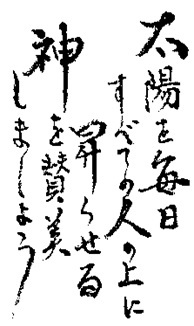 太陽を毎日
すべての人の上に
昇らせる
神を賛美
しましょう